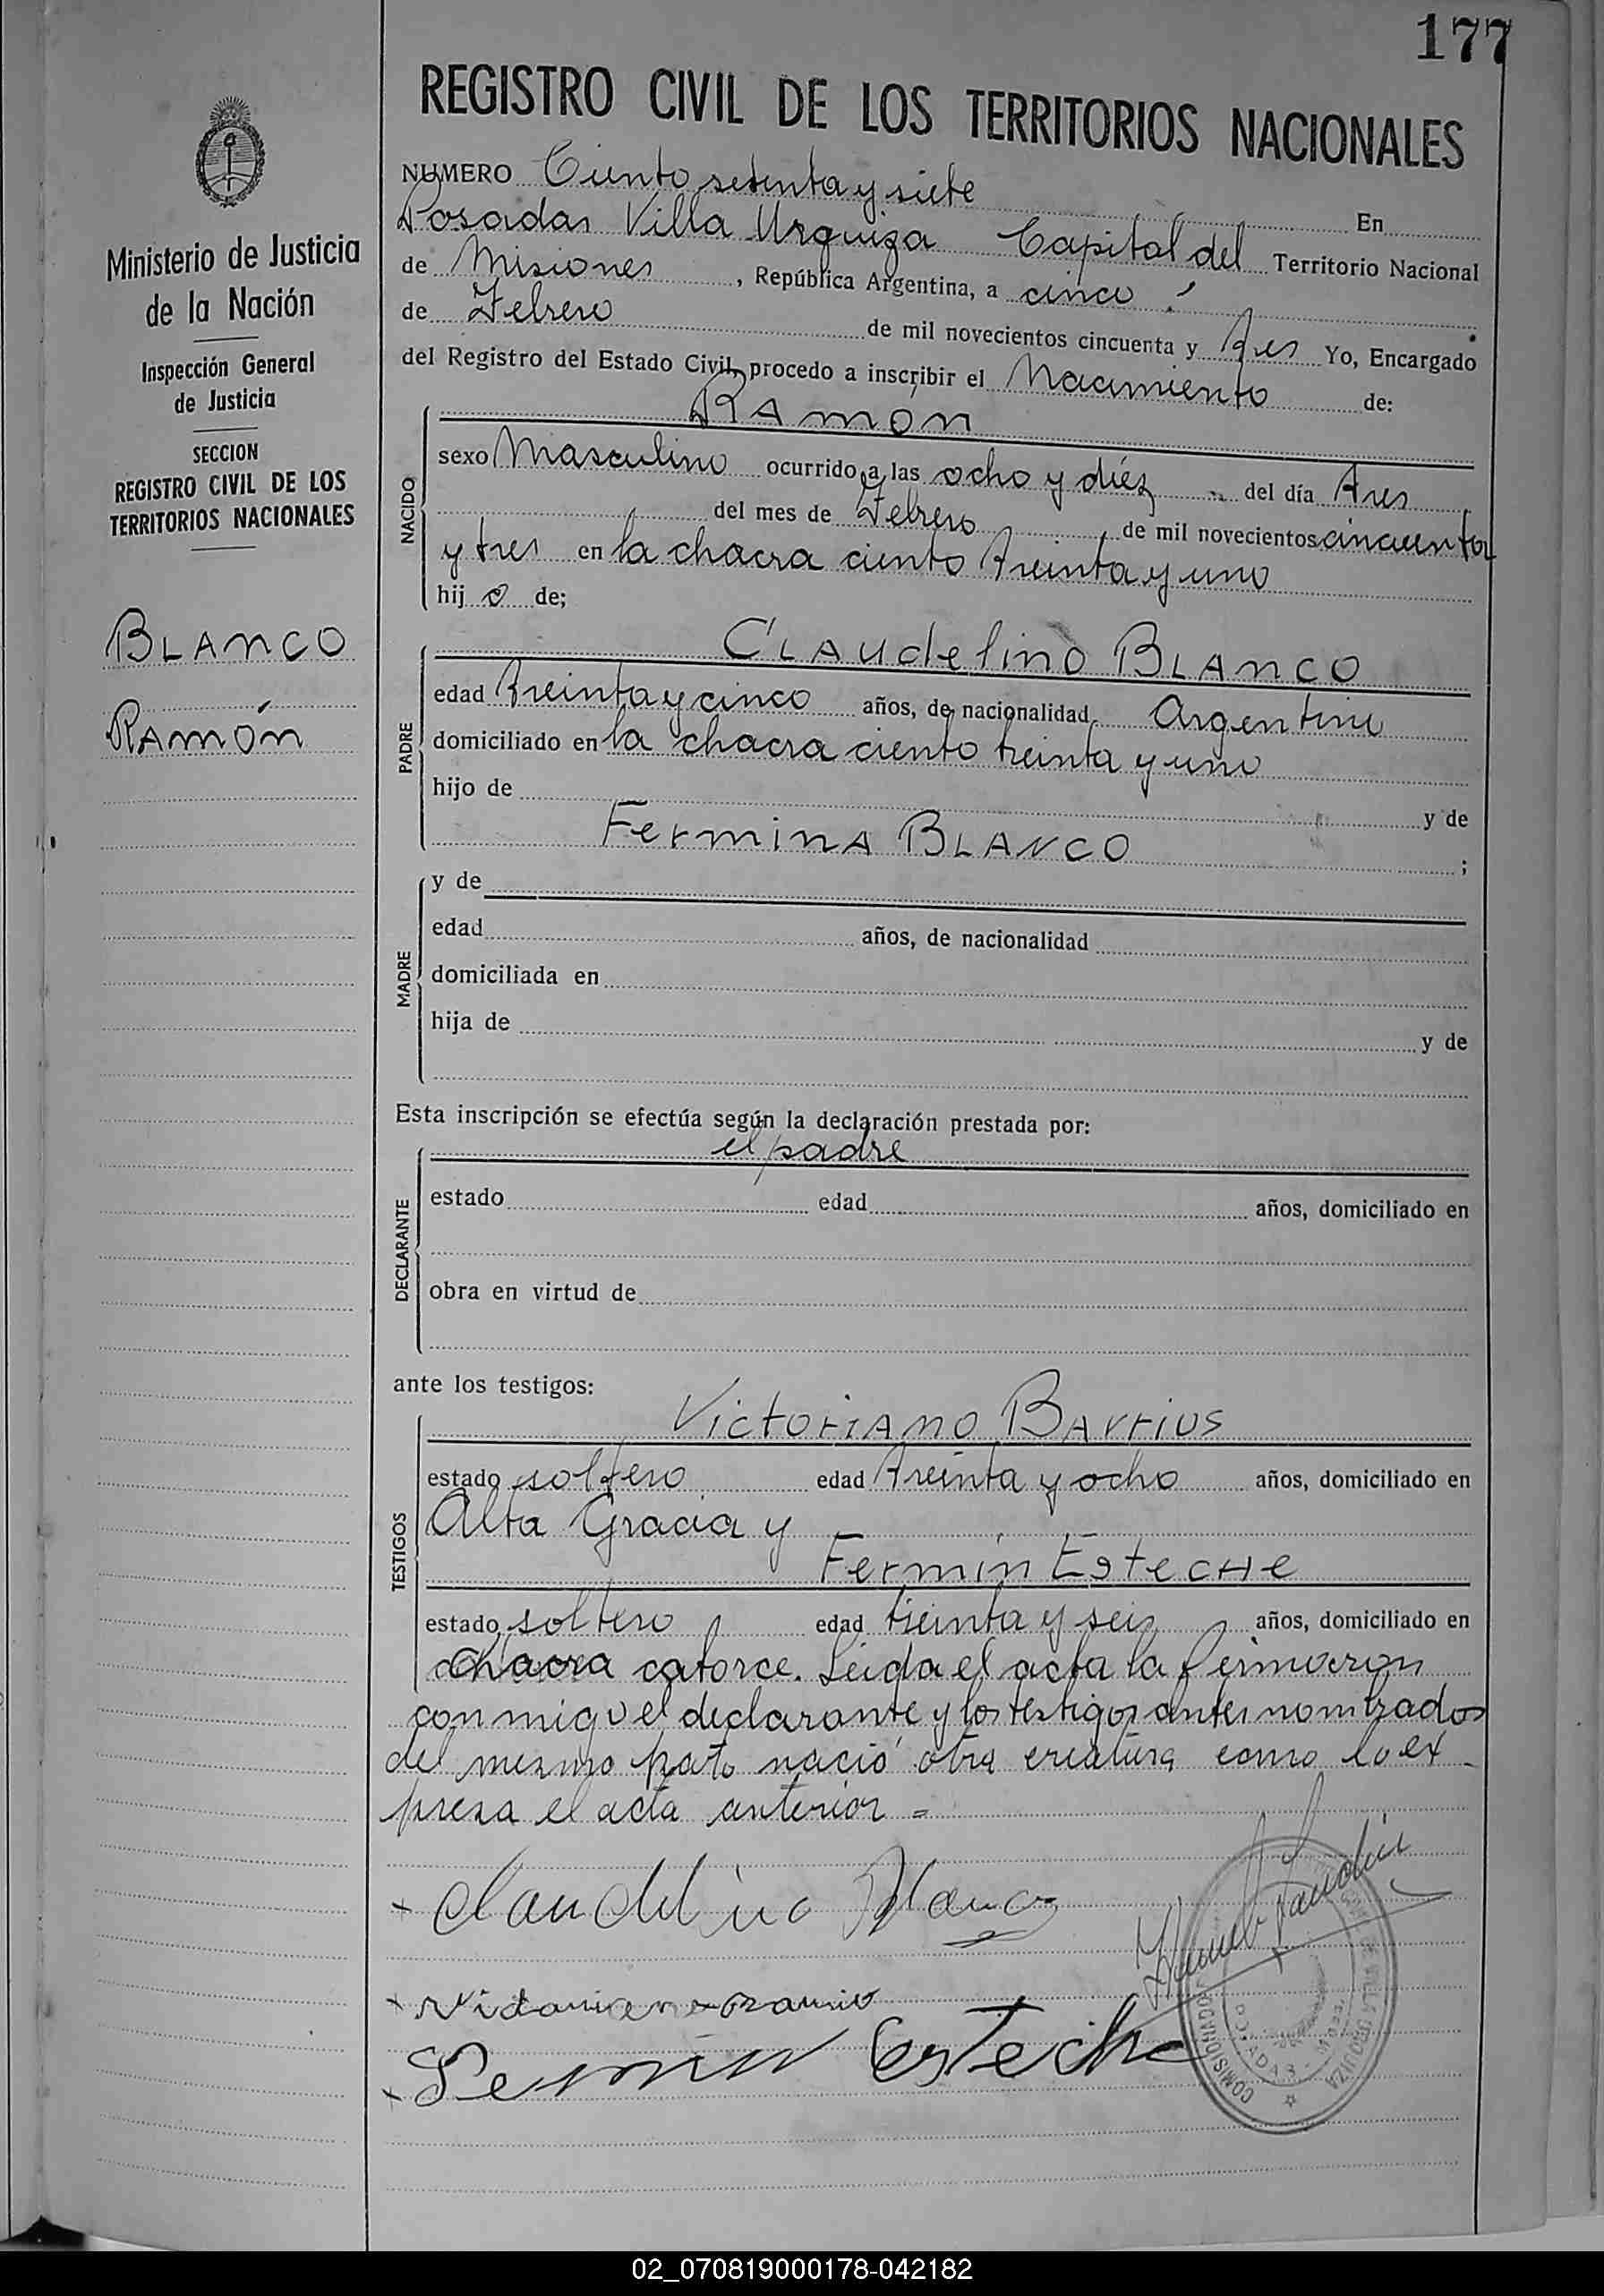 177
REGISTRO CIVIL DE LOS TERRITORIOS NACIONALES
Ministerio de Justicia
de la Nación
Inspección General
de Justicia
SECCION
REGISTRO CIVIL DE LOS
TERRITORIOS NACIONALES
BLANCO
RAMÓN
NUMERO Ciento setenta y siete En
Posadas Villa Urquiza Capital del Territorio Nacional
de Misiones, República Argentina, a cinco
de Febrero de mil novecientos cincuenta y tres Yo, Encargado
del Registro del Estado Civil, procedo a inscribir el Nacimiento de:
RAMÓN
NACIDO
sexo Masculino ocurrido a las ocho y diéz del día tres
del mes de Febrero de mil novecientos cincuenta
y tres en la chacra ciento treinta y uno
hijo de;
CLAUdelino BLANCO
PADRE
edad treinta y cinco años, de nacionalidad Argentino
domiciliado en la chacra ciento treinta y uno
hijo de y de
FerminA BLANCO ;
MADRE
y de
edad años, de nacionalidad
domiciliada en
hija de y de
Esta inscripción se efectúa según la declaración prestada por:
el padre
DECLARANTE
estado edad años, domiciliado en
obra en virtud de
ante los testigos:
VictoriANO BArrius
TESTIGOS
estado soltero edad treinta y ocho años, domiciliado en
Alta Gracia y
Fermín EsteCHe
estado soltero edad treinta y seis años, domiciliado en
chacra catorce. Leida el acta la firmaron
conmigo el declarante y los testigos antes nombrados
del mesmo parto nació otra creatura como lo ex-
presa el acta anterior =
x Claudelino Blanco
x
x Fermin Esteche
COMISIONADO VILLA URQUIZA
POSADAS - Mnes.
02_070819000178-042182